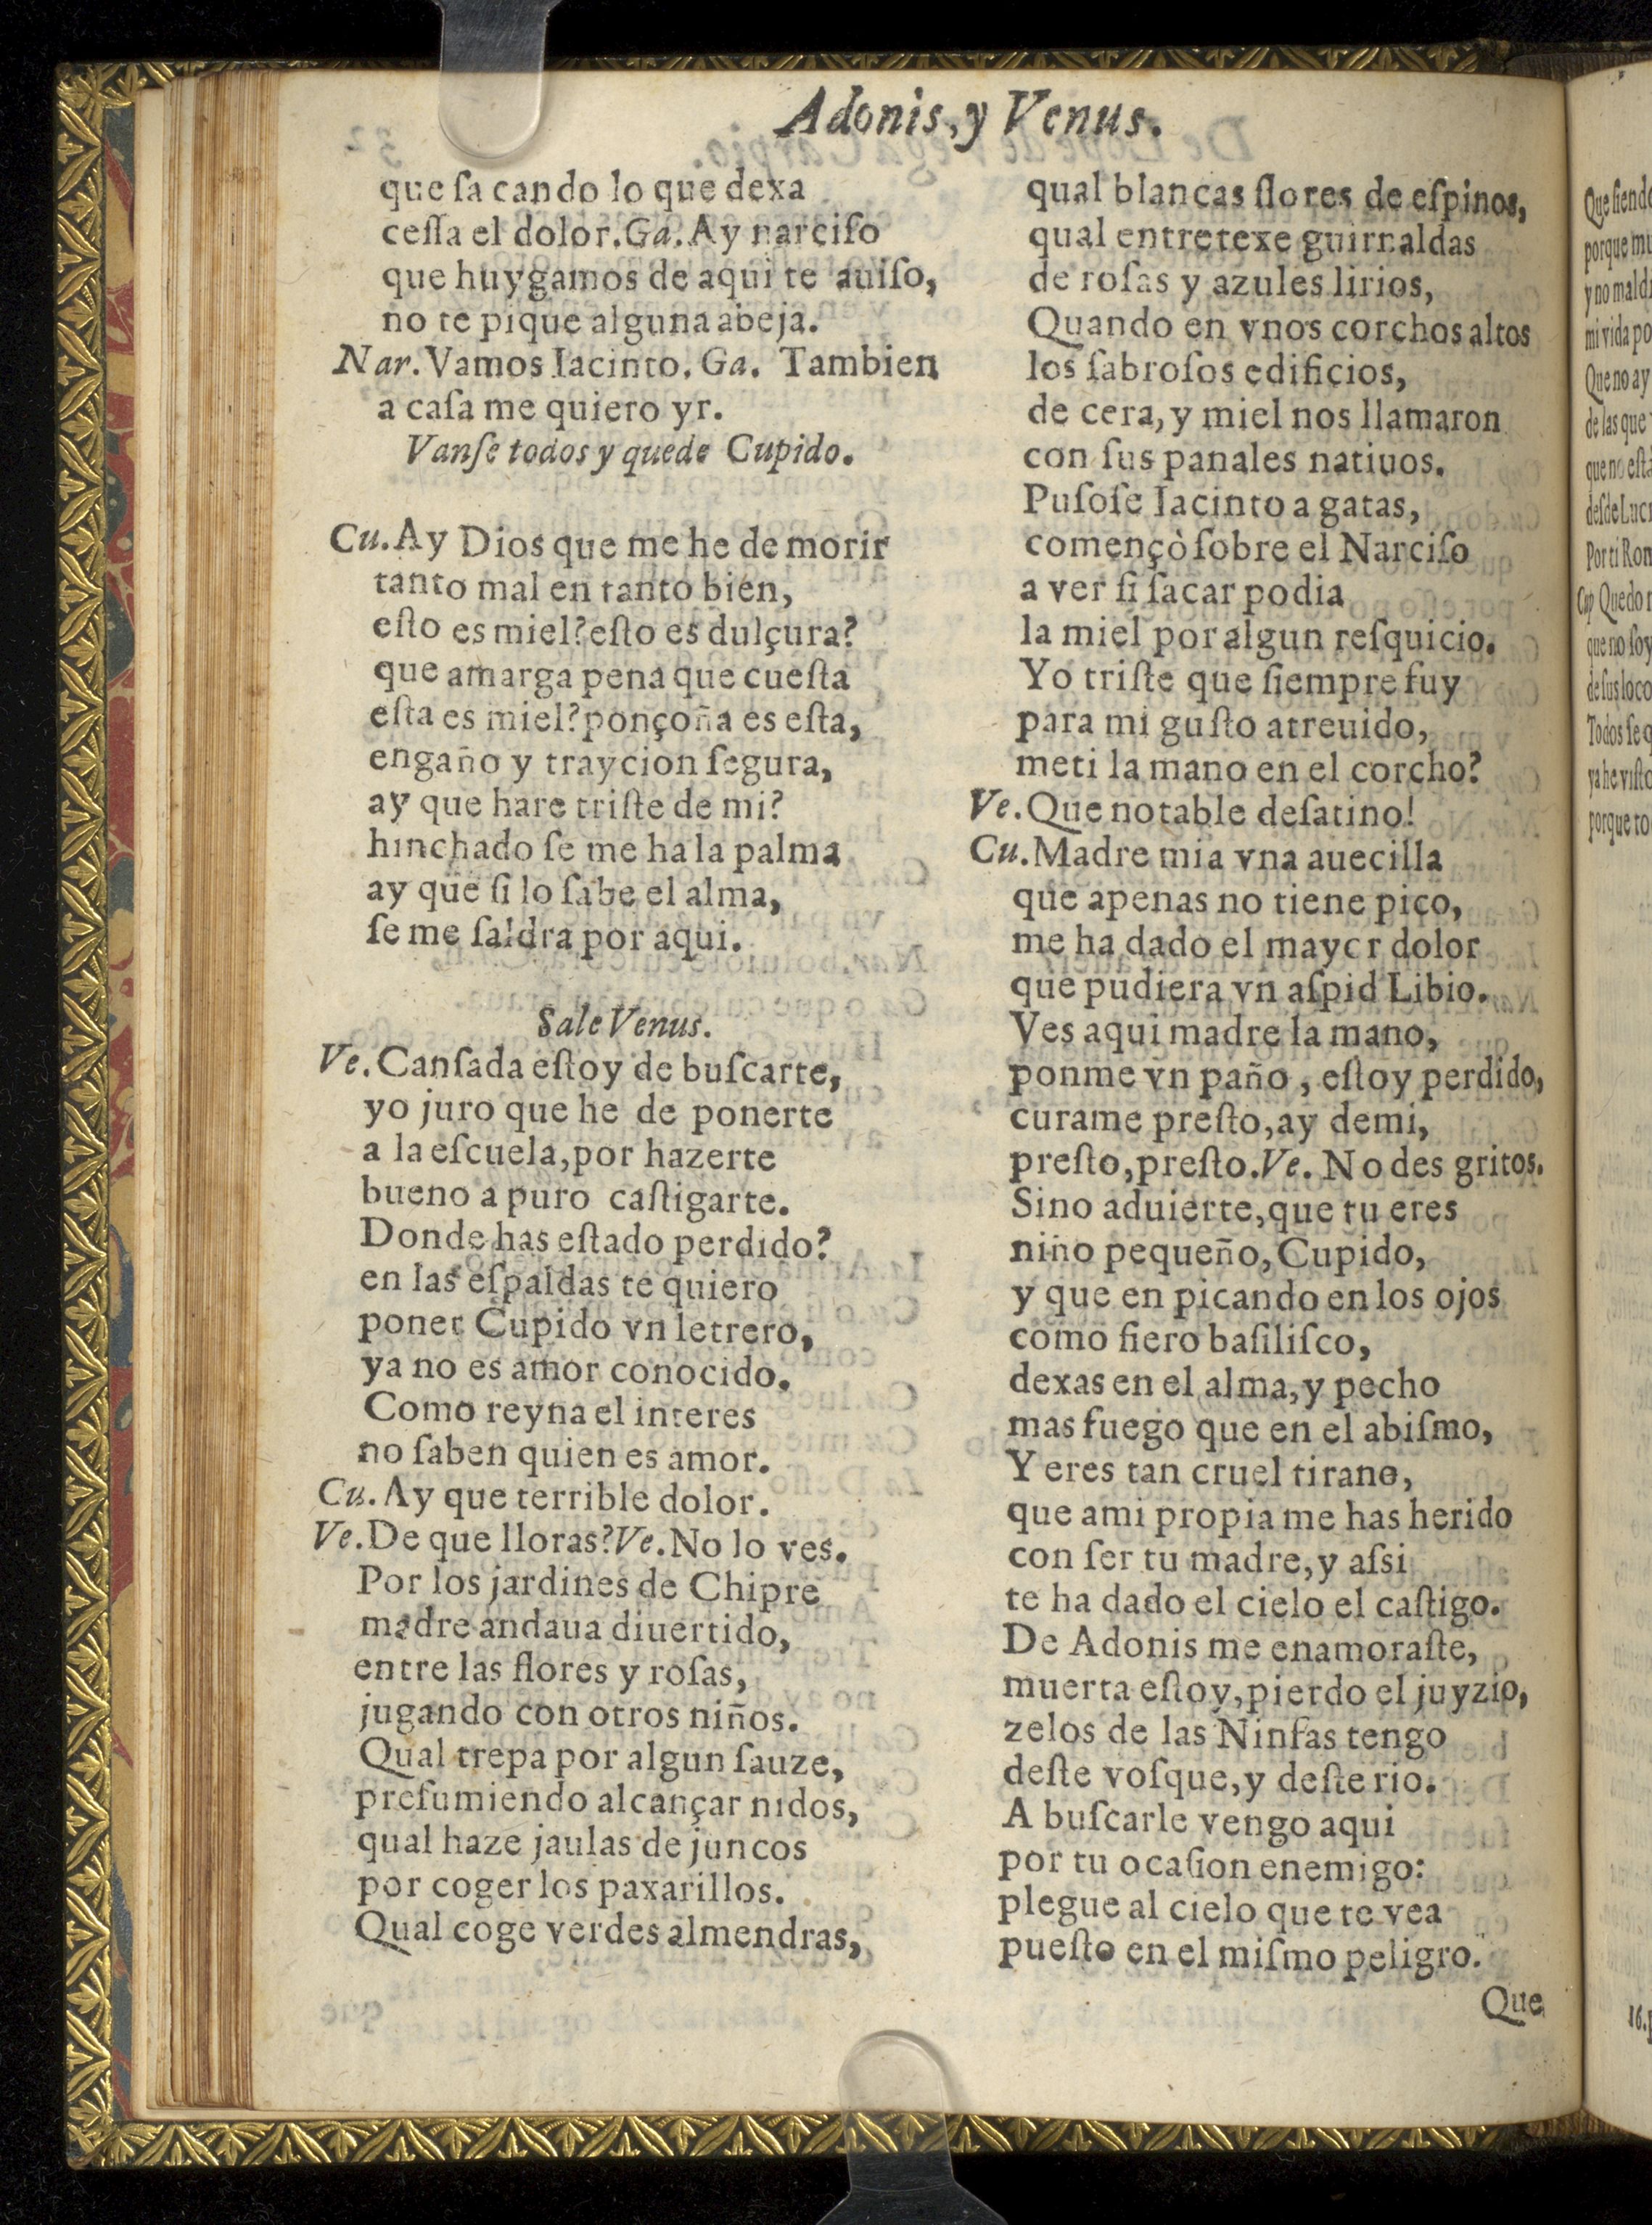 Adonis, y Venus.
que ſa cando lo que dexa
ceſſa el dolor. Ga. Ay narciſo
que huygamos de aqui te auiſo,
no te pique alguna abeja.
Nar. Vamos Iacinto. Ga. Tambien
a caſa me quiero yr.
Vanſe todos y quede Cupido.
Cu. Ay Dios que me he de morir
tanto mal en tanto bien,
eſto es miel? eſto es dulçura?
que amarga pena que cueſta
eſta es miel? ponçoña es eſta,
engaño y traycion ſegura,
ay que hare triſte de mi?
hinchado ſe me ha la palma
ay que ſi lo ſabe el alma,
ſe me ſaldra por aqui.
Sale Venus.
Ve. Canſada eſtoy de buſcarte,
yo juro que he de ponerte
a la eſcuela, por hazerte
bueno a puro caſtigarte.
Donde has eſtado perdido?
en las eſpaldas te quiero
poner Cupido vn letrero,
ya no es amor conocido.
Como reyna el interes
no ſaben quien es amor.
Cu. Ay que terrible dolor.
Ve. De que lloras? Ve. No lo ves.
Por los jardines de Chipre
madre andaua diuertido,
entre las flores y roſas,
jugando con otros niños.
Qual trepa por algun ſauze,
preſumiendo alcançar nidos,
qual haze jaulas de juncos
por coger los paxarillos.
Qual coge verdes almendras,
qual blancas flores de eſpinos,
qual entretexe guirnaldas
de roſas y azules lirios,
Quando en vnos corchos altos
los ſabroſos edificios,
de cera, y miel nos llamaron
con ſus panales natiuos.
Puſoſe Iacinto a gatas,
començò ſobre el Narciſo
a ver ſi ſacar podia
la miel por algun reſquicio.
Yo triſte que ſiempre fuy
para mi guſto atreuido,
meti la mano en el corcho?
Ve. Que notable deſatino!
Cu. Madre mia vna auecilla
que apenas no tiene pico,
me ha dado el mayor dolor
que pudiera vn aſpid Libio.
Ves aqui madre la mano,
ponme vn paño, eſtoy perdido,
curame preſto, ay demi,
preſto, preſto. Ve. No des gritos.
Sino aduierte, que tu eres
niño pequeño, Cupido,
y que en picando en los ojos
como fiero baſiliſco,
dexas en el alma, y pecho
mas fuego que en el abiſmo,
Y eres tan cruel tirano,
que ami propia me has herido
con ſer tu madre, y aſsi
te ha dado el cielo el caſtigo.
De Adonis me enamoraſte,
muerta eſtoy, pierdo el juyzio,
zelos de las Ninfas tengo
deſte voſque, y deſte rio.
A buſcarle vengo aqui
por tu ocaſion enemigo:
plegue al cielo que te vea
pueſto en el miſmo peligro.
Que
Que ſiendo
porque mu
y no mald
mi vida po
Que no ay
de las que
que no eſtà
deſde Lucr
Por ti Rom
Cup Quedo
que no ſoy
de ſus loco
Todos ſe q
ya he viſto
porque to